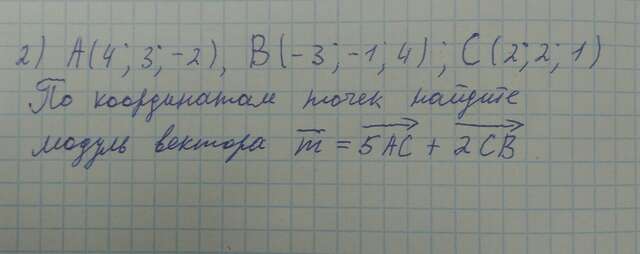 2) A(4; 3; -2), B(-3; -1; 4); C(2; 2; 1)
По координатам точек найдите
модуль вектора m̅ = 5AC + 2CB